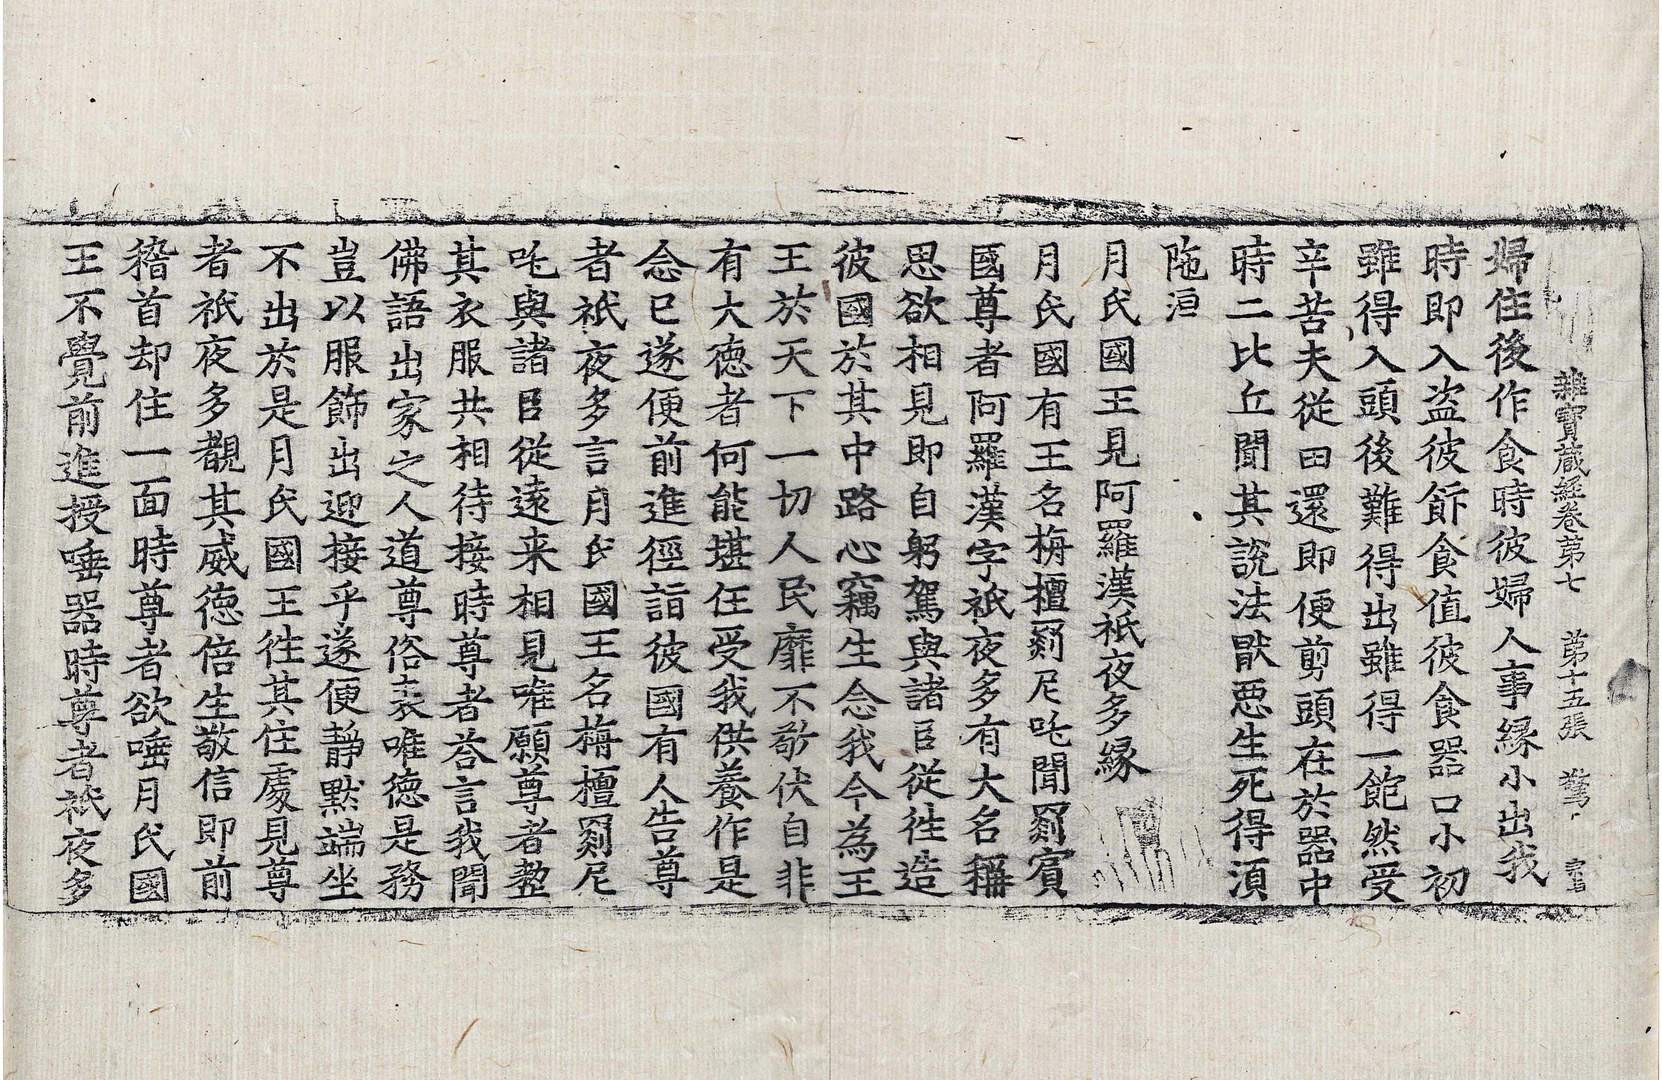 雜寶蔵経卷第七 第十五張 驚
婦住後作食時彼婦人事緣小出我
時即入盗彼飮食值彼食器口小初
雖得入頭後難得出雖得一飽然受
辛苦夫從田還即便剪頭在於器中
時二比丘聞其說法猒惡生死得湏
陁洹
月氏國王見阿羅漢祇夜多緣
月氏國有王名栴檀罽尼吒聞罽賓
國尊者阿羅漢字祇夜多有大名稱
思欲相見即自躬駕與諸臣從往造
彼國於其中路心竊生念我今為王
王於天下一切人民靡不敬伏自非
有大德者何能堪任受我供養作是
念已遂便前進徑詣彼國有人告尊
者祇夜多言月氏國王名栴檀罽尼
吒與諸臣從遠来相見唯願尊者整
其衣服共相待接時尊者荅言我聞
佛語出家之人道尊俗表唯德是務
豈以服飾出迎接乎遂便靜默端坐
不出於是月氏國王往其住處見尊
者祇夜多覩其威德倍生敬信即前
稽首却住一面時尊者欲唾月氏國
王不覺前進授唾器時尊者祇夜多